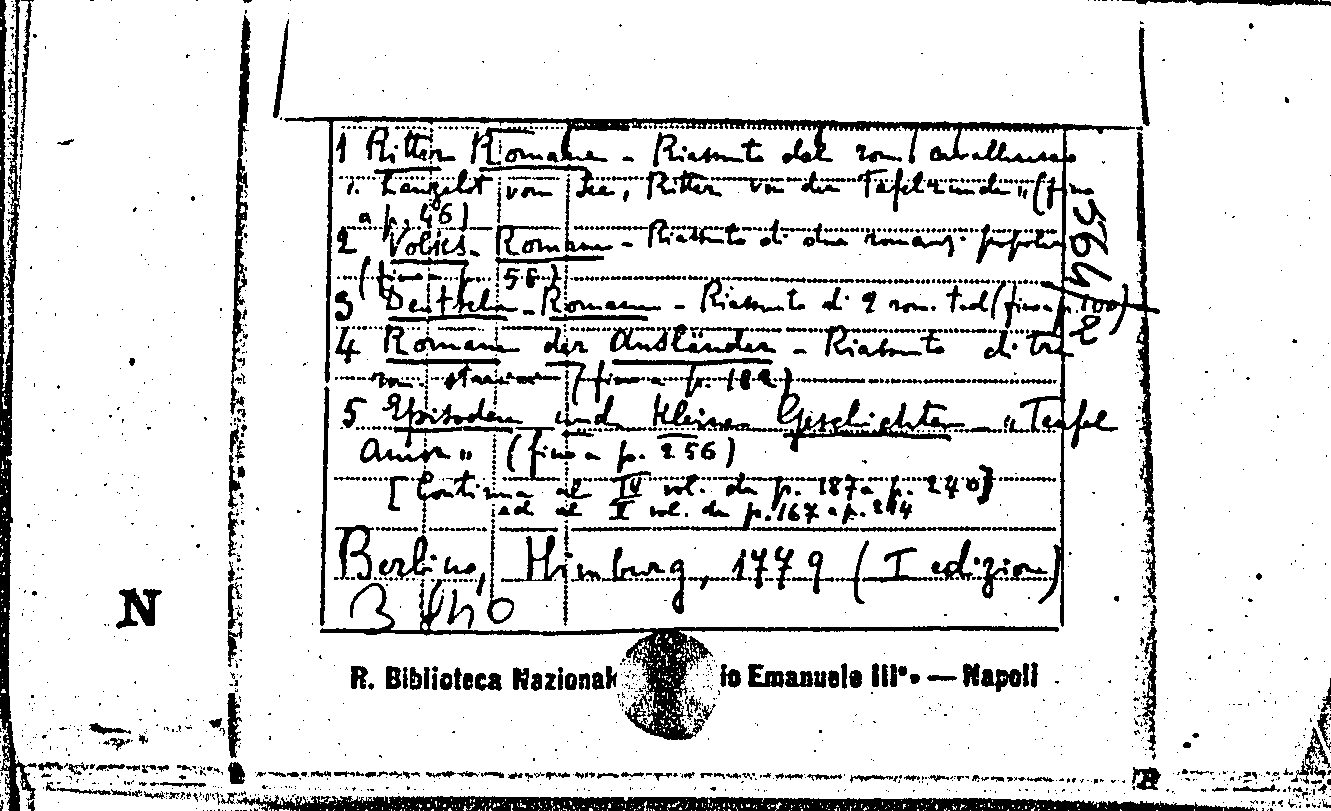 1 Ritter Romane - Riassunto del rom. cavalleresco
1. Lanzelot vom See, Ritter von der Tafelrunde" (fino
a p. 46)
2 Volks-Romane - Riassunto di due romanzi popolari
(fino a p. 58)
3 Deutsche-Romane - Riassunto di 2 rom. ted (fino a p. 100)
4 Romane der Ausländer - Riassunto di tre
rom. stranieri (fino a p. 182)
5 Episoden und kleine Geschichten - "Teufel
Amor" (fino a p. 256)
[Continua al IV vol. da p. 187 a p. 240]
ed al X vol. da p. 167 a p.
Berlino, Himburg, 1779 (I edizione)
B
5649
2
N
R. Biblioteca Nazional io Emanuele III° - Napoli